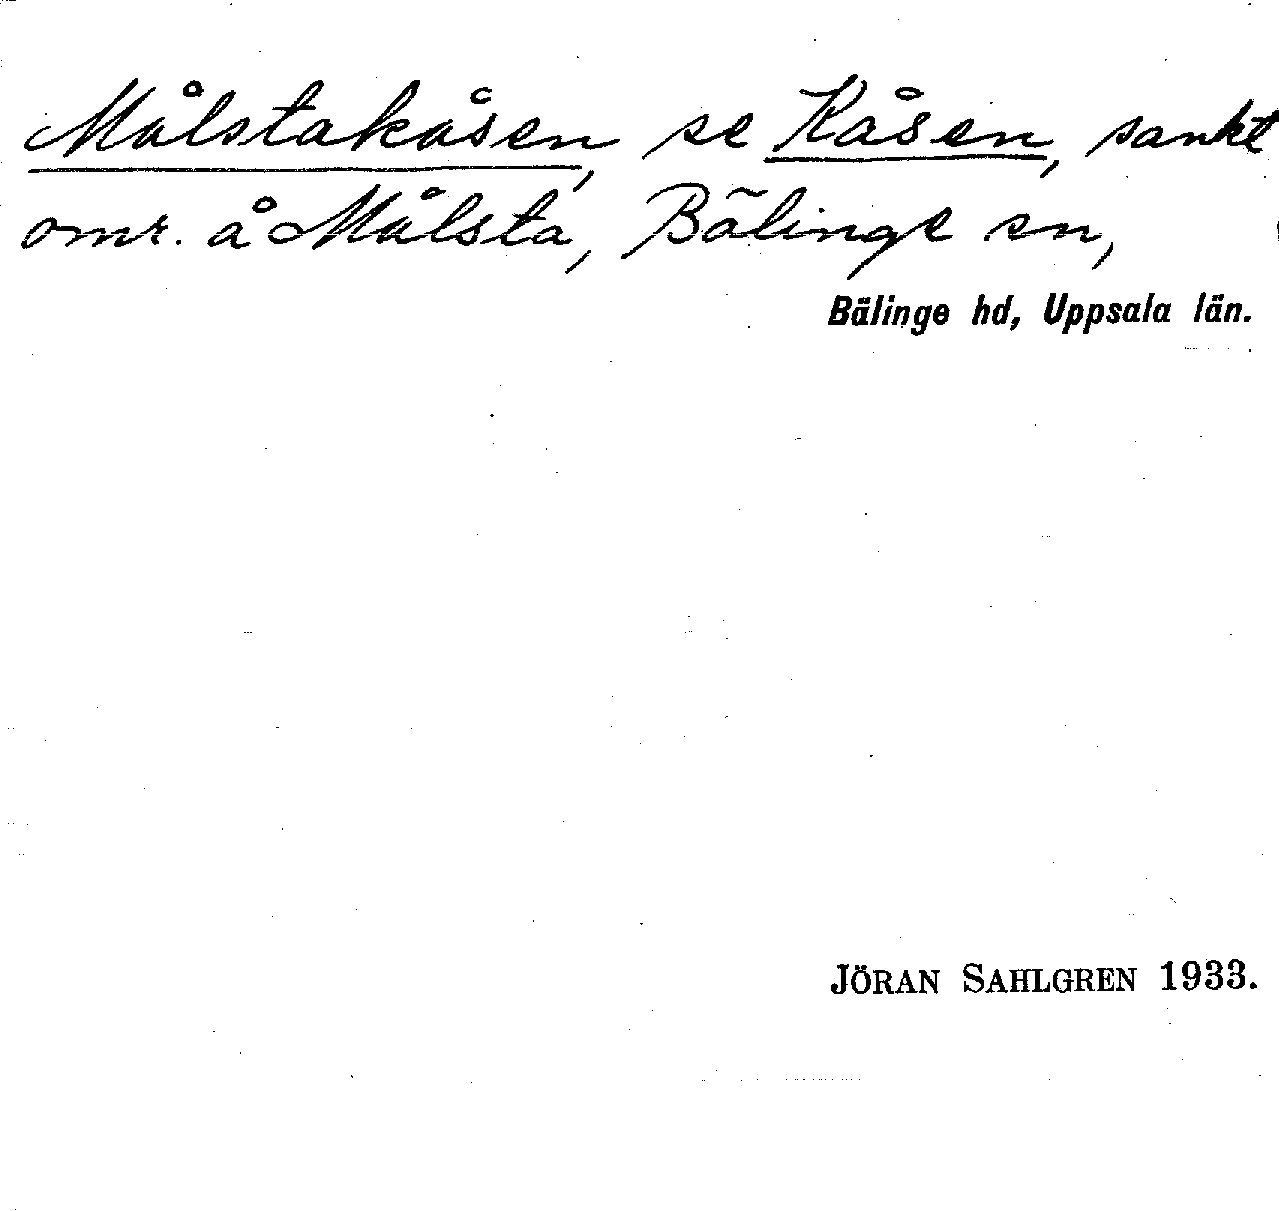 Målstakåsen, se Kåsen, sankt
omr. å Målsta, Bälinge sn,
Bälinge hd, Uppsala län.
JÖRAN SAHLGREN 1933.